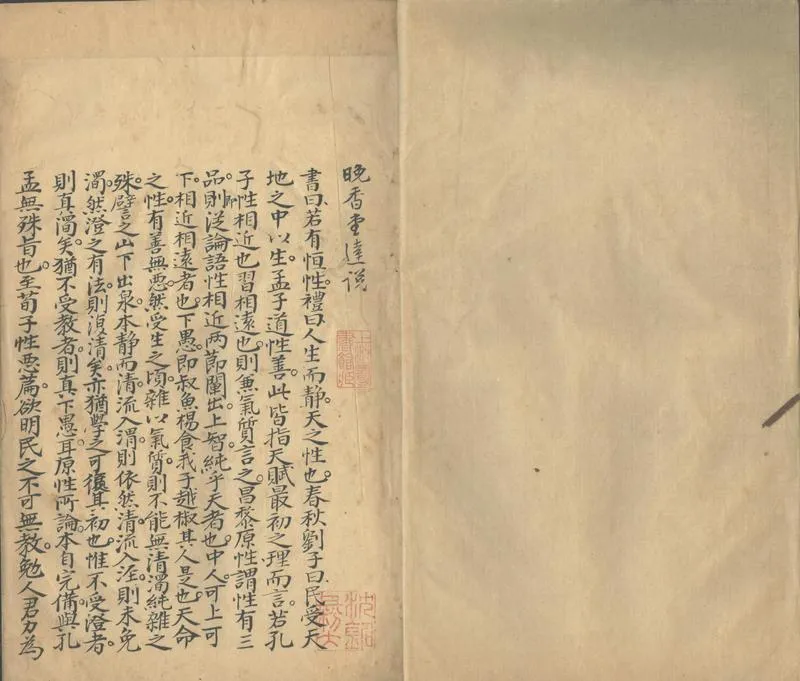 晚香堂達説
書曰若有恒性。禮曰人生而静。天之性也。春秋劉子曰民受天
地之中以生。孟子道性善。此皆指天賦最初之理而言。若孔
子性相近也習相遠也。則兼氣質言之。昌黎原性謂性有三
品。則即從論語性相近兩節闡出。上智純乎天者也。中人可上可
下。相近相遠者也。下愚即叔魚楊食我子越椒其人是也。天命
之性。有善無惡。然受生之頃。雜以氣質。則不能無清濁純雜之
殊。譬之山下出泉。本静而清。流入渭則依然清。流入涇則未免
濁。然澄之有法。則復清矣。亦猶學之可復其初也。惟不受澄者。
則真濁矣。猶不受教者。則真下愚耳。原性所論。本自完備。與孔
孟無殊旨也。至荀子性惡篇。欲明民之不可無教。勉人君力為